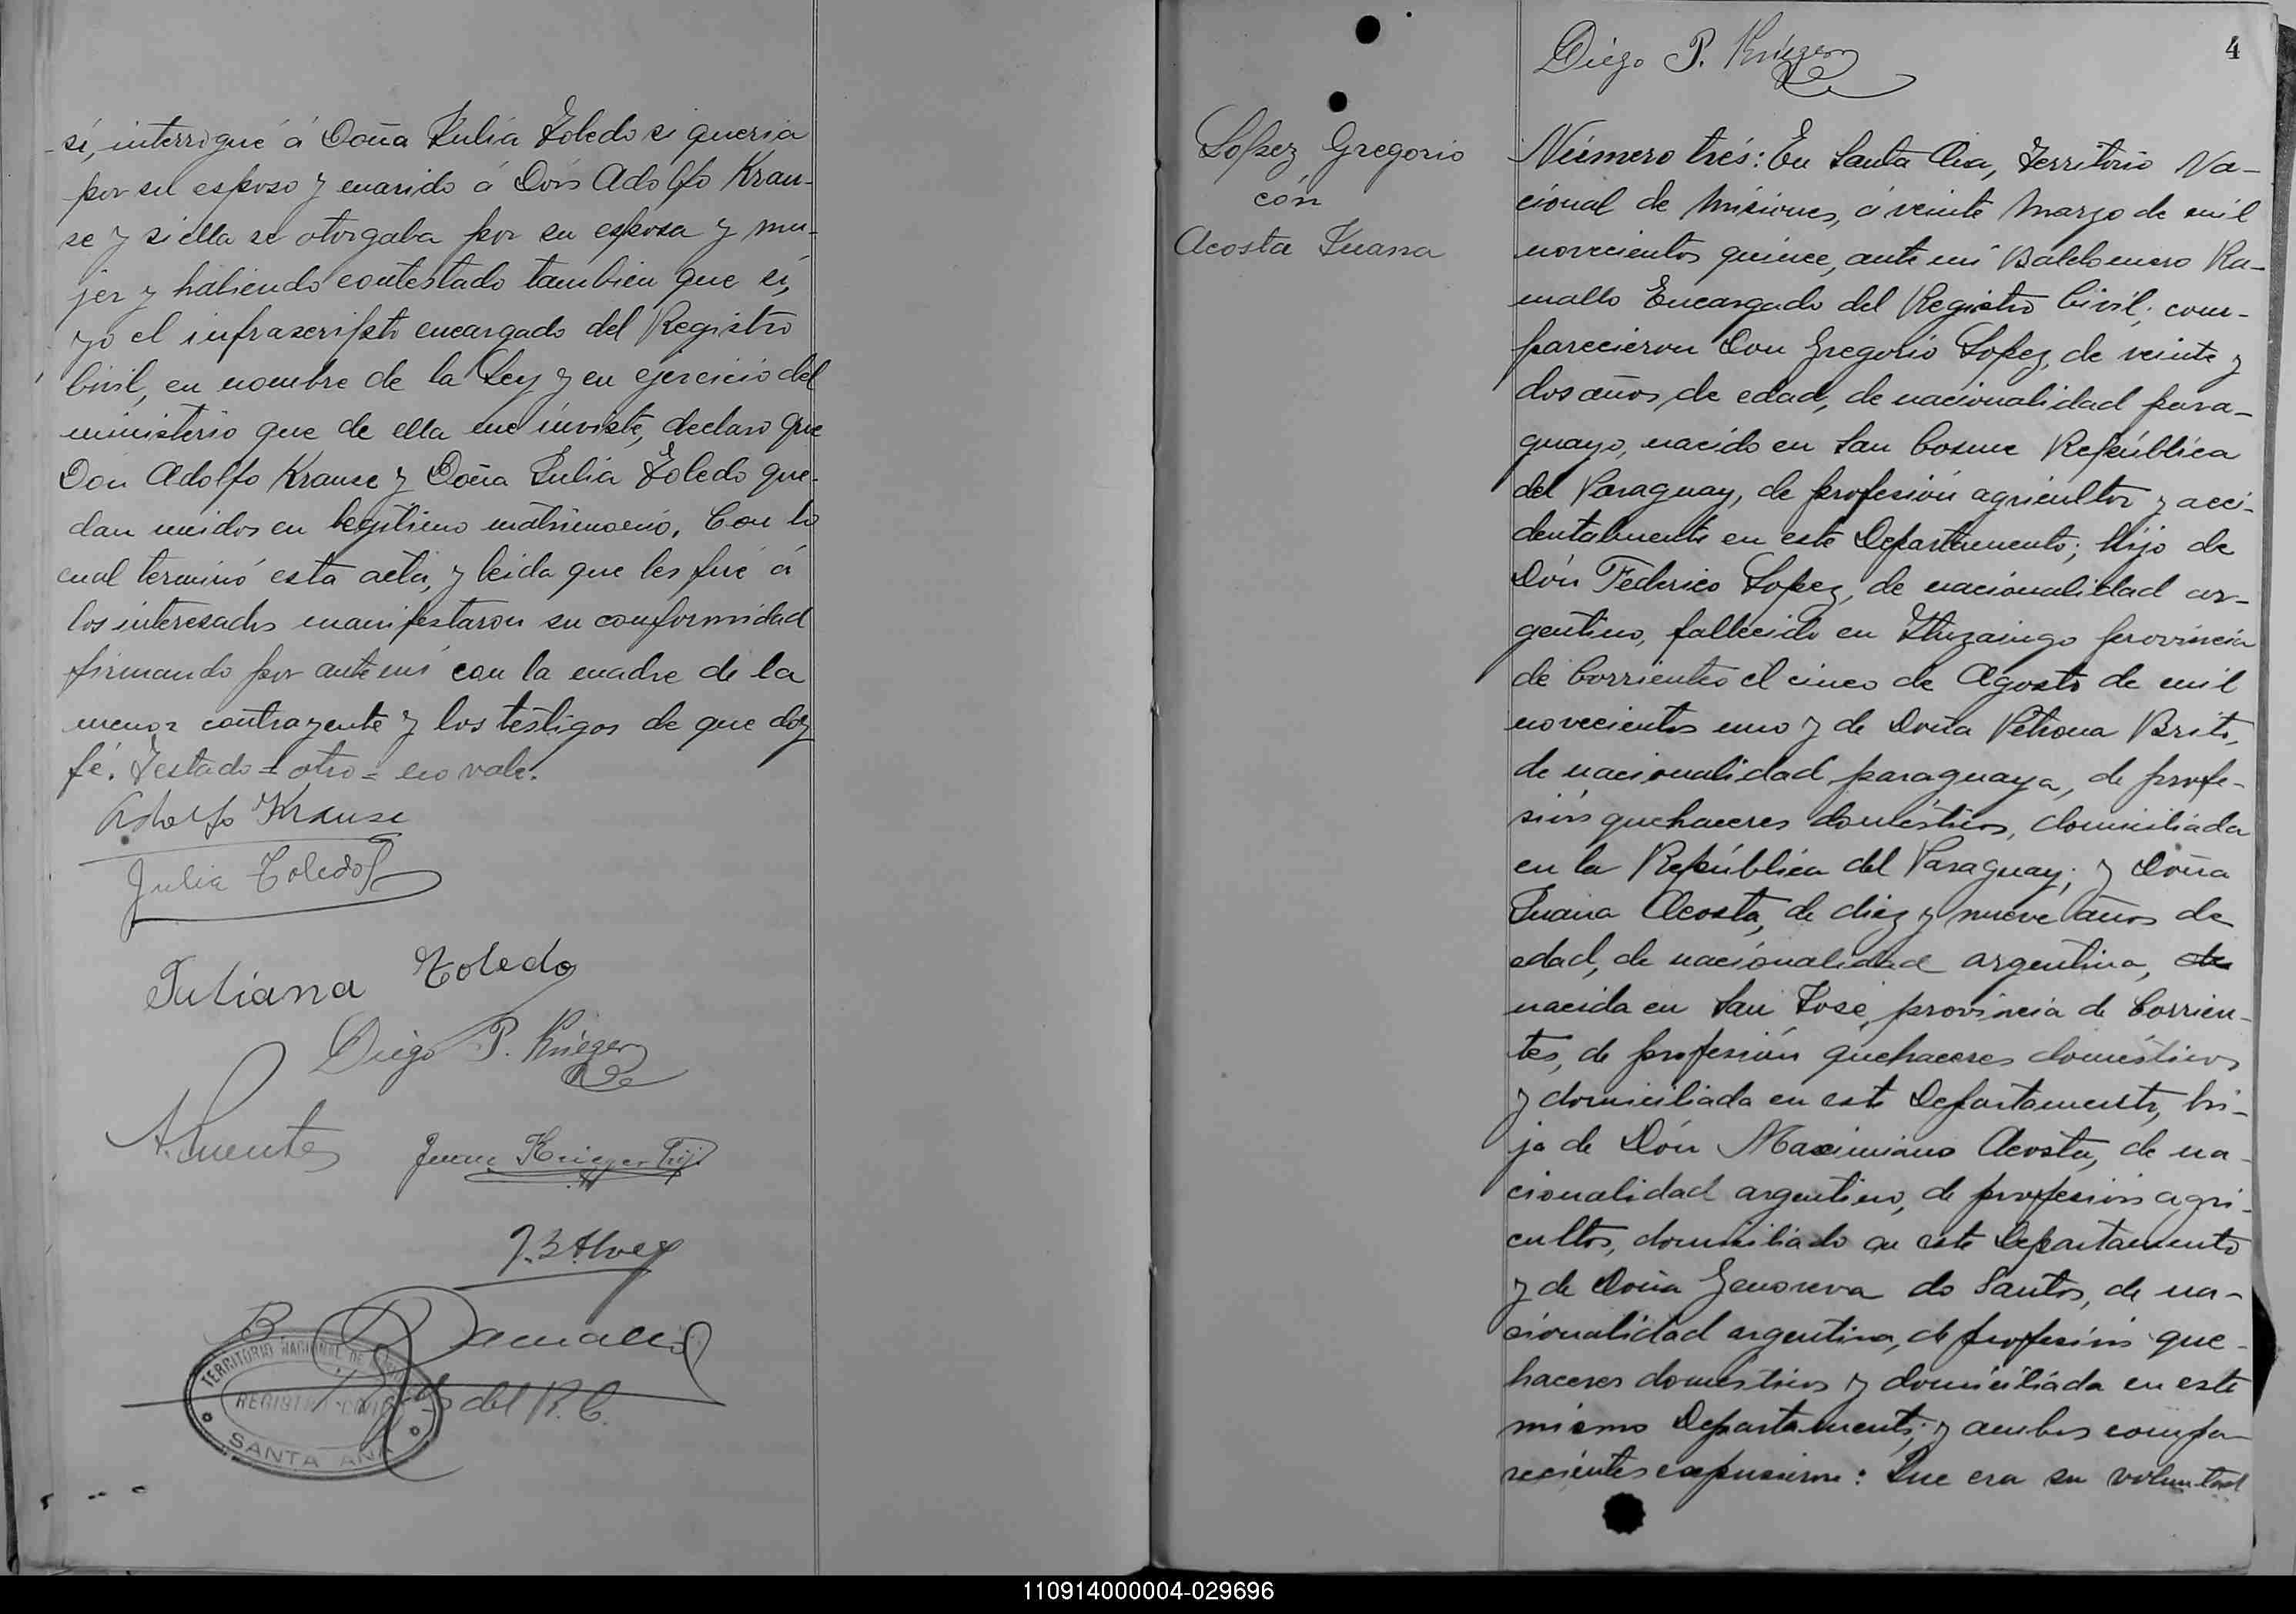 si, interrogué á Doña Julia Toledo si queria
por su esposo y marido á Dón Adolfo Krau-
se y si ella se otorgaba por su esposa y mu-
jer y habiendo contestado tambien que si,
yo el infrascripto encargado del Registro
Civil, en nombre de la Ley y en ejercicio del
ministerio que de ella me inviste, declaro que
Dón Adolfo Krause y Doña Julia Toledo que-
dan unidos en legitimo matrimonio. Con lo
cual terminó esta acta, y leida que les fué á
los interesados manifestaron su conformidad
firmando por ante mi con la madre de la
menor contrayente y los testigos de que doy
fé. Testado = otro = no vale.
Adolfo Krause
Julia Toledo
Juliana Toledo
Diego P. Krieger
A. Puentes
Juan Krieger
J. B. Alvez
B. Ramallo
del R. C.
TERRITORIO NACIONAL DE
REGISTRO CIVIL
SANTA ANA
4
Diego P. Krieger
Lopez Gregorio
cón
Acosta Juana
Número trés: En Santa Ana, Territorio Na-
cional de Misiones, á veinte Marzo de mil
novecientos quince, ante mi Baldomero Ra-
mallo Encargado del Registro Civil; com-
parecieron Don Gregorio Lopez, de veinte y
dos años de edad, de nacionalidad para-
guayo, nacido en San Cosme República
del Paraguay, de profesión agricultor y acci-
dentalmente en este Departamento; hijo de
Dón Federico Lopez, de nacionalidad ar-
gentino, fallecido en Ituzaingo provincia
de Corrientes el cinco de Agosto de mil
novecientos uno y de Doña Petrona Brite,
de nacionalidad paraguaya, de profe-
sión quehaceres domésticos, domiciliada
en la República del Paraguay; y Doña
Juana Acosta, de diez y nueve años de
edad, de nacionalidad argentina, de
nacida en San José, provincia de Corrien-
tes, de profesión quehaceres domésticos
y domiciliada en este Departamento, hi-
ja de Dón Maximiano Acosta, de na-
cionalidad argentino, de profesión agri-
cultor, domiciliado en este Departamento
y de Doña Genoveva do Santos, de na-
cionalidad argentina, de profesión que-
haceres domésticos y domiciliada en este
mismo Departamento; y ambos compa-
recientes expusieron: Que era su voluntad
110914000004-029696